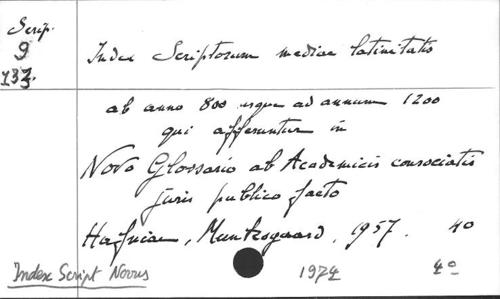 Scrip.
9
133.
Index Scriptorum mediae latinitatis
ab anno 800 usque ad annum 1200
qui afferuntur in
Novo Glossario ab Academicis consociatis
juris publico facto
Hafniae, Munksgaard, 1957. 40
Index Script Novus 1974 4º